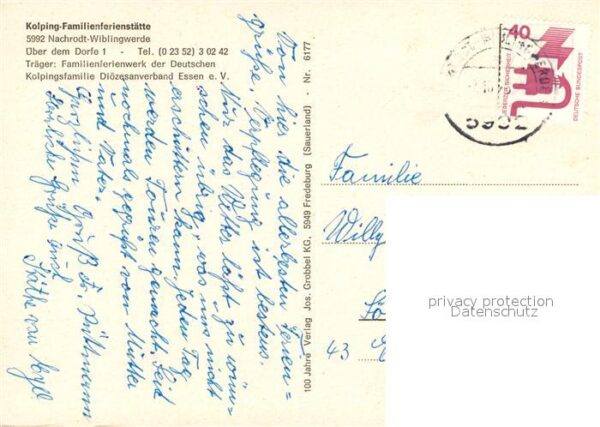 Kolping-Familienferienstätte
5992 Nachrodt-Wiblingwerde
Über dem Dorfe 1 - Tel. (0 23 52) 3 02 42
Träger: Familienferienwerk der Deutschen
Kolpingsfamilie Diözesanverband Essen e. V.
Von hier die allerbesten Ferien=
grüße. Verpflegung ist bestens.
Nur das Wetter läßt zu wün-
schen übrig, was uns nicht
erschüttern kann. Jeden Tag
werden Touren gemacht. Seid
nochmals gegrüßt von Mutter
und Vater.
Herzlichen Gruß
Herzliche Grüße und
Käthe van
100 Jahre Verlag Jos. Grobbel KG., 5949 Fredeburg (Sauerland) Nr. 6177
40
JEDERZEIT SICHERHEIT
DEUTSCHE BUNDESPOST
5992
Familie
Willy
43 E
privacy protection
Datenschutz